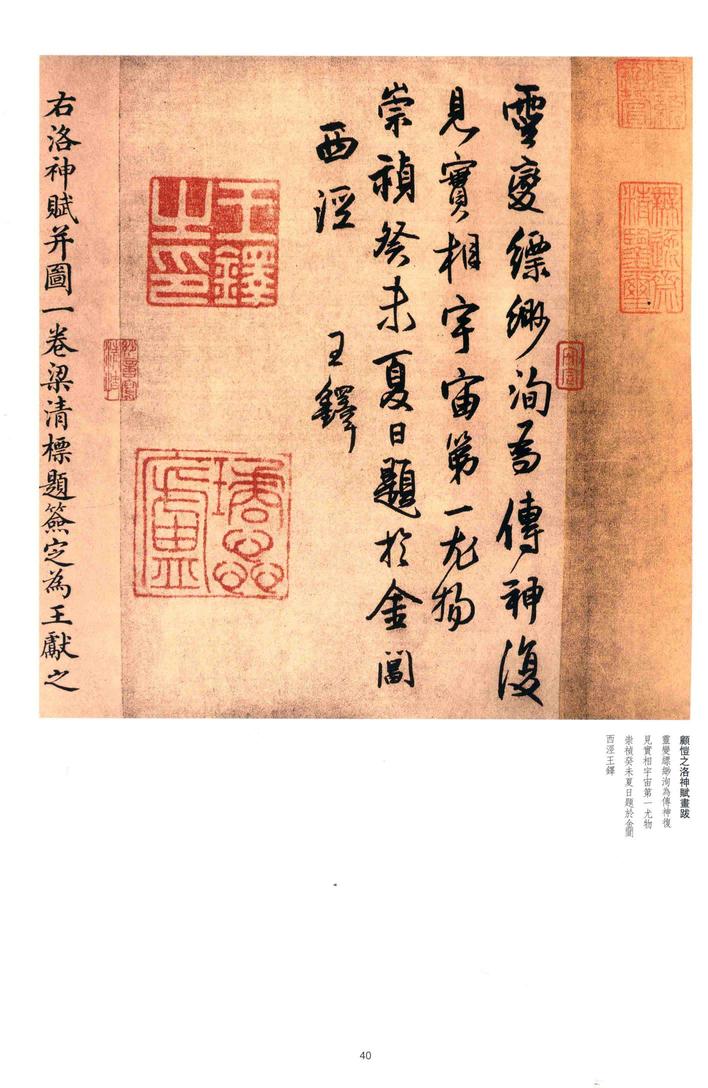 靈變縹緲洵為傳神復
見實相宇宙第一尤物
崇禎癸未夏日題於金閶
西涇
王鐸
王鐸之印
右洛神賦并圖一卷梁清標題簽定為王獻之
顧愷之洛神賦畫跋
靈變縹緲洵為傳神復
見實相宇宙第一尤物
崇禎癸未夏日題於金閶
西涇王鐸
40